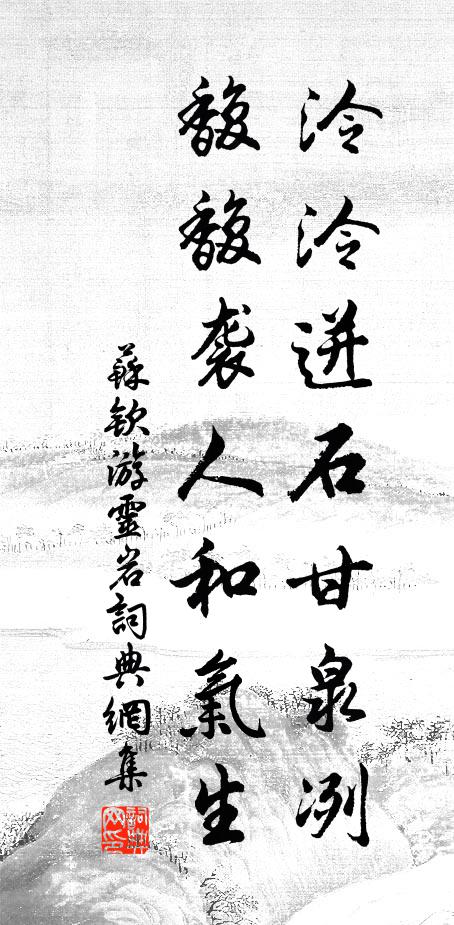 泠泠迸石甘泉冽
馥馥袭人和氣生
蘇欽游靈岩詞典網集